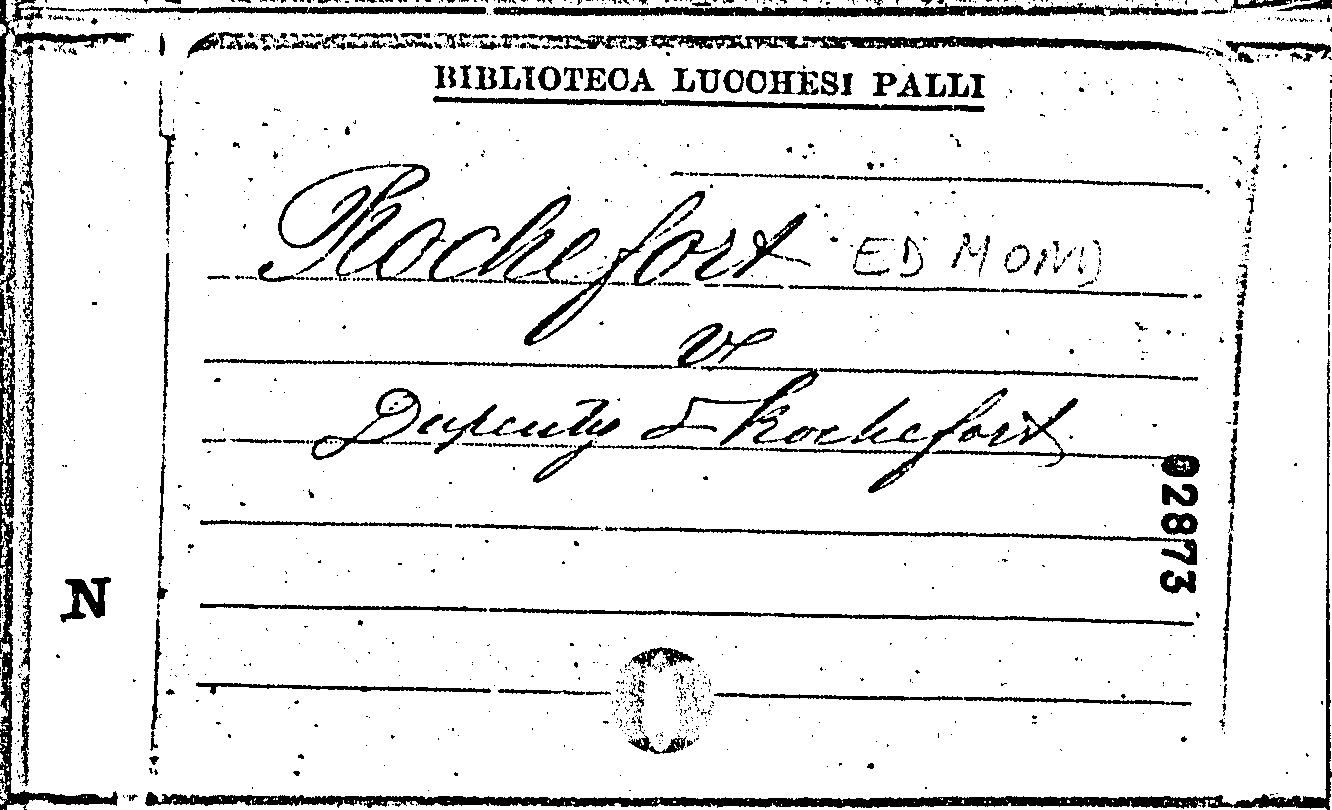 BIBLIOTECA LUCCHESI PALLI
Rochefort EDMOND
V
Dupeuty & Rochefort
02873
N